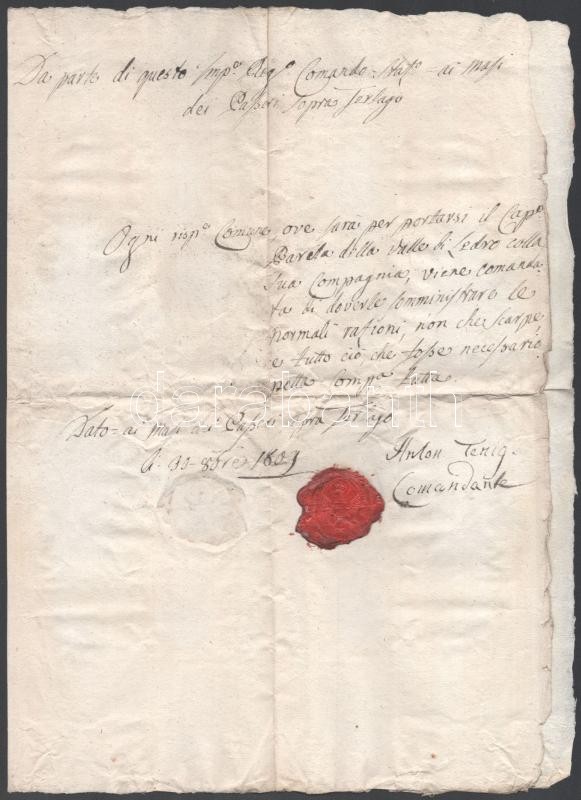 Da parte di questo Imp.º Reg.º Comando Staz.º ai Masi
dei Casperi sopra Terlago
Ogni risp.º Comune, ove sarà per portarsi il Cap.º
della Valle di Ledro colla
sua Compagnia, viene comanda-
ta di doverle somministrare le
normali razioni, non che scarpe,
e tutto ciò che fosse necessario
nella Comp.ª tutta.
Dato ai Masi dei Casperi sopra Terlago
li 30 8bre 1809
Anton
Comandante
darabanth